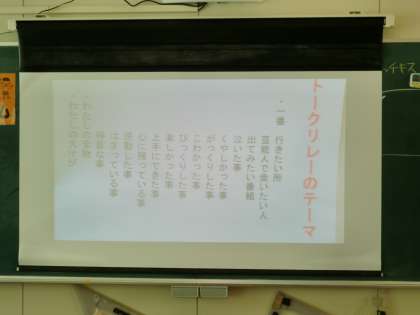 トークリレーのテーマ
・一番 行きたい所
芸能人で会いたい人
出てみたい番組
泣いた事
くやしかった事
がっくりした事
こわかった事
びっくりした事
楽しかった事
上手にできた事
心に残っている事
感動した事
はまっている事
得意な事
わたしの宝物